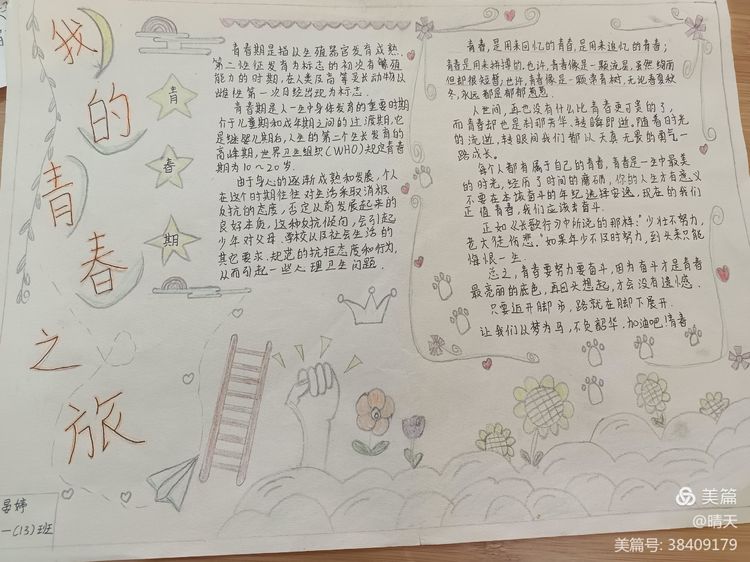 我的青春之旅
青春期
青春期是指从生殖器官发育成熟、
第二征发育为标志的初次有繁殖
能力的时期,在人类及高等灵长动物以
雌性第一次月经出现为标志。
青春期是人一生中身体发育的重要时期
介于儿童期和成年期之间的过渡期,它
是继婴儿期后,人生的第二个生长发育的
高峰期,世界卫生组织(WHO)规定青春
期为10~20岁。
由于身心的逐渐成熟和发展,个人
在这个时期往往对生活采取消极
反抗的态度,否定以前发展起来的
良好本质,这种反抗倾向,会引起
少年对父母、学校以及社会生活的
其它要求、规范的抗拒态度和行为,
从而引起一些心理卫生问题。
青春,是用来回忆的青春,是用来追忆的青春;
青春是用来拼搏的,也许,青春像是一颗流星,虽然绚丽
但却很短暂,也许,青春像是一颗常青树,无论春夏秋
冬,永远都是郁郁葱葱。
人世间,再也没有什么比青春更可贵的了,
而青春却也是刹那芳华,转瞬即逝,随着时光
的流逝,转眼间我们都以天真无畏的勇气一
路成长。
每个人都有属于自己的青春,青春是一生中最美
的时光,经历了时间的磨砺,你的人生才有意义
不要在本该奋斗的年纪选择安逸,现在的我们
正值青春,我们应该去奋斗。
正如《长歌行》中所说的那样:"少壮不努力,
老大徒伤悲,"如果年少不及时努力,到头来只能
悔恨一生。
总之,青春要努力要奋斗,因为奋斗才是青春
最亮丽的底色,再回头想起,才会没有遗憾。
只要迈开脚步,路就在脚下展开.
让我们以梦为马,不负韶华,加油吧!青春
婷
一(13)班
美篇
@晴天
美篇号: 38409179